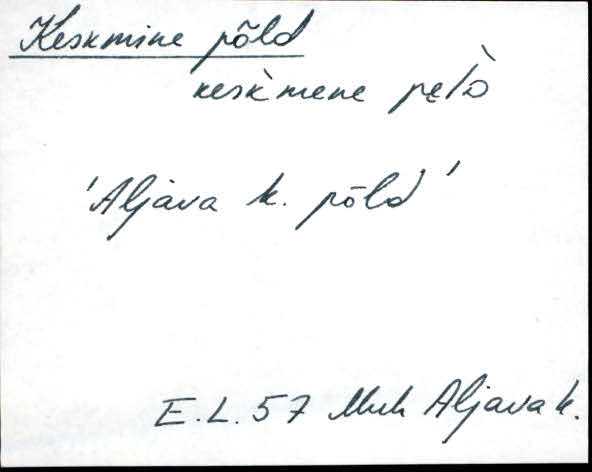 Keskmine põld
kesk̀mene pe̮l̀D
'Aljava k. põld'
E.L. 57 Muh Aljava k.